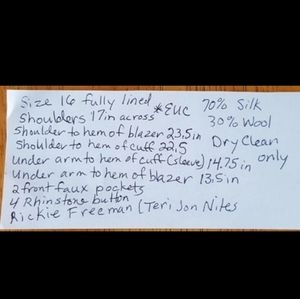 Size 16 fully lined
Shoulders 17in across *EUC 70% Silk
30% Wool
Shoulder to hem of blazer 23.5in
Shoulder to hem of cuff 22.5 Dry Clean only
Under arm to hem of cuff (sleeve) 14.75 in
Under arm to hem of blazer 13.5in
2 front faux pockets
4 Rhinstone button
Rickie Freeman (Teri Jon Nites